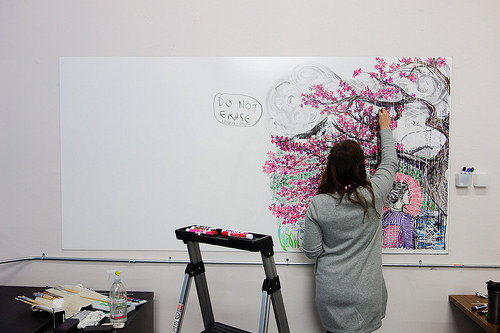 DO NOT
ERASE